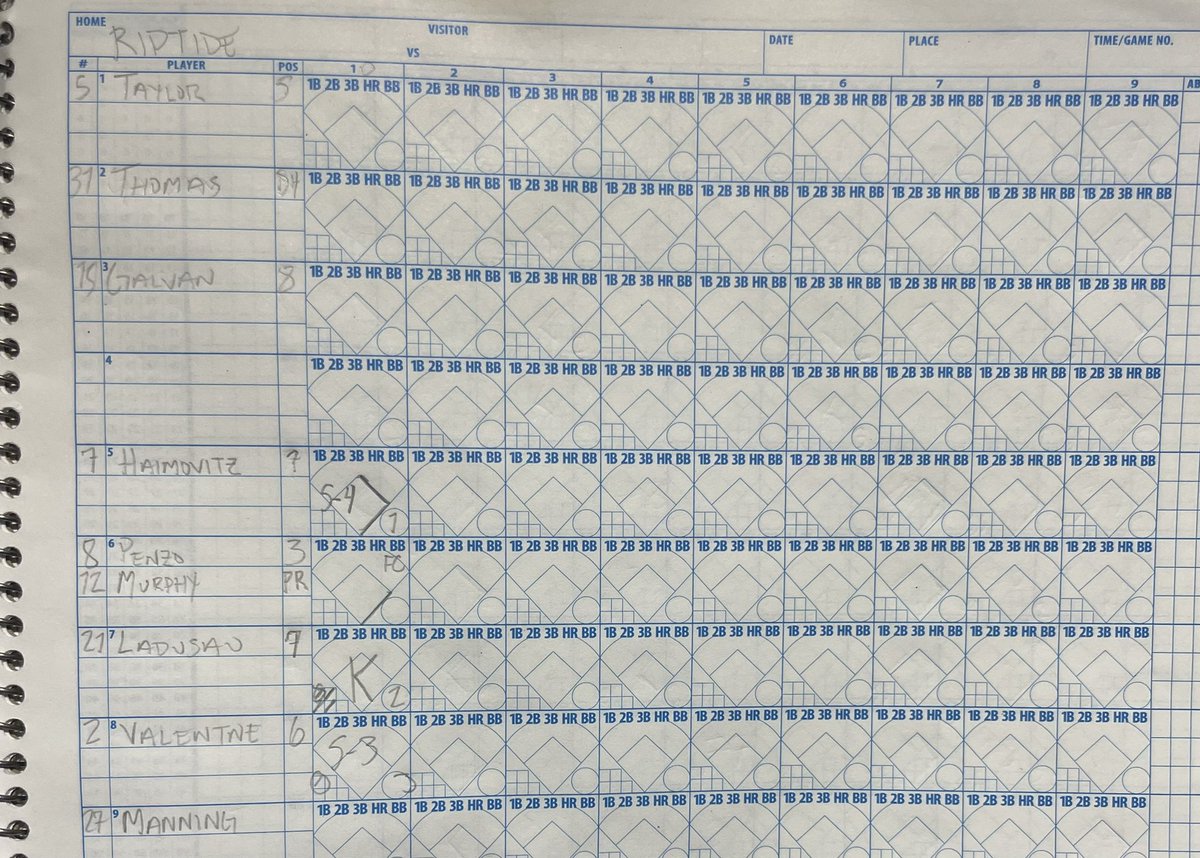 HOME RIPTIDE VISITOR DATE PLACE TIME/GAME NO.
VS
# PLAYER POS 1 0 2 3 4 5 6 7 8 9 AB
5 1 TAYLOR 5 1B 2B 3B HR BB 1B 2B 3B HR BB 1B 2B 3B HR BB 1B 2B 3B HR BB 1B 2B 3B HR BB 1B 2B 3B HR BB 1B 2B 3B HR BB 1B 2B 3B HR BB 1B 2B 3B HR BB
31 2 THOMAS 1B 2B 3B HR BB 1B 2B 3B HR BB 1B 2B 3B HR BB 1B 2B 3B HR BB 1B 2B 3B HR BB 1B 2B 3B HR BB 1B 2B 3B HR BB 1B 2B 3B HR BB 1B 2B 3B HR BB
19 3 GALVAN 8 1B 2B 3B HR BB 1B 2B 3B HR BB 1B 2B 3B HR BB 1B 2B 3B HR BB 1B 2B 3B HR BB 1B 2B 3B HR BB 1B 2B 3B HR BB 1B 2B 3B HR BB 1B 2B 3B HR BB
4 1B 2B 3B HR BB 1B 2B 3B HR BB 1B 2B 3B HR BB 1B 2B 3B HR BB 1B 2B 3B HR BB 1B 2B 3B HR BB 1B 2B 3B HR BB 1B 2B 3B HR BB 1B 2B 3B HR BB
7 5 HAIMOVITZ ? 1B 2B 3B HR BB 1B 2B 3B HR BB 1B 2B 3B HR BB 1B 2B 3B HR BB 1B 2B 3B HR BB 1B 2B 3B HR BB 1B 2B 3B HR BB 1B 2B 3B HR BB 1B 2B 3B HR BB
5-4 1
8 6 PENZO 3 1B 2B 3B HR BB 1B 2B 3B HR BB 1B 2B 3B HR BB 1B 2B 3B HR BB 1B 2B 3B HR BB 1B 2B 3B HR BB 1B 2B 3B HR BB 1B 2B 3B HR BB 1B 2B 3B HR BB
FC
12 MURPHY PR
21 7 LADUSAU 7 1B 2B 3B HR BB 1B 2B 3B HR BB 1B 2B 3B HR BB 1B 2B 3B HR BB 1B 2B 3B HR BB 1B 2B 3B HR BB 1B 2B 3B HR BB 1B 2B 3B HR BB 1B 2B 3B HR BB
K 2
2 8 VALENTNE 6 1B 2B 3B HR BB 1B 2B 3B HR BB 1B 2B 3B HR BB 1B 2B 3B HR BB 1B 2B 3B HR BB 1B 2B 3B HR BB 1B 2B 3B HR BB 1B 2B 3B HR BB 1B 2B 3B HR BB
5-3
27 9 MANNING 1B 2B 3B HR BB 1B 2B 3B HR BB 1B 2B 3B HR BB 1B 2B 3B HR BB 1B 2B 3B HR BB 1B 2B 3B HR BB 1B 2B 3B HR BB 1B 2B 3B HR BB 1B 2B 3B HR BB